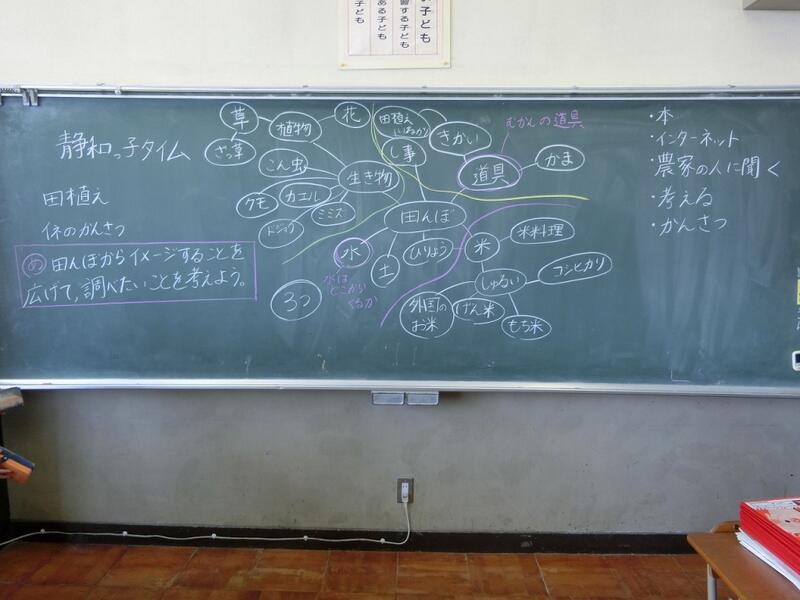 子ども
ある子ども
習する子ども
い子ども
静和っ子タイム
田植え
イネのかんさつ
め 田んぼからイメージすることを
広げて、調べたいことを考えよう。
草
植物
花
ざっ草
こん虫
生き物
クモ
カエル
ミミズ
ドジョウ
田植え
いねかり
し事
きかい
むかしの道具
道具
かま
田んぼ
水
水は
どこから
くるか
土
ひりょう
米
米料理
しゅるい
コシヒカリ
外国の
お米
げん米
もち米
3つ
・本
・インターネット
・農家の人に聞く
・考える
・かんさつ